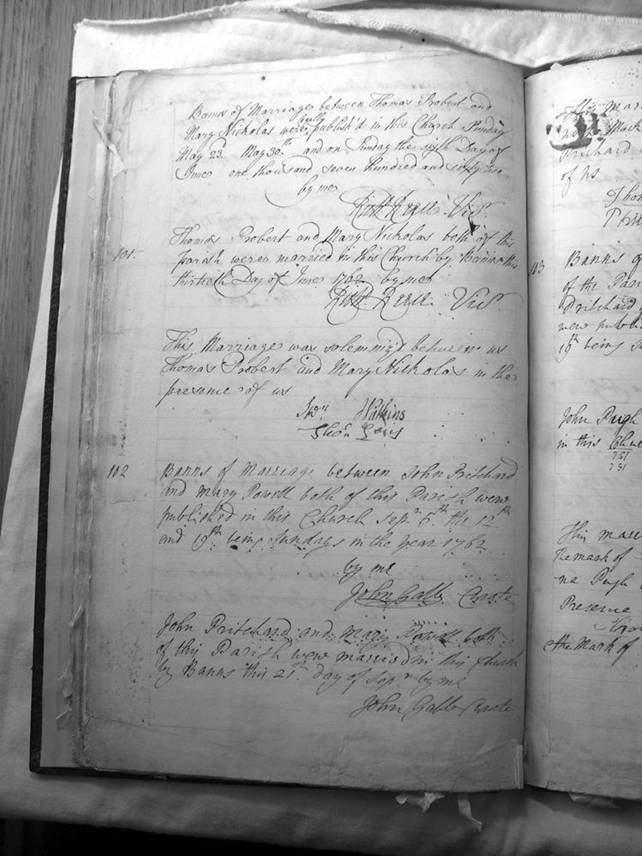 Banns of Marriage between Thomas Probert and
Mary Nicholas were duly publish'd in this Church Sunday
May 23. May 30th and on Sunday the sixth Day of
June one thousand seven hundred and sixty two
by me
Vicr
101. Thomas Probert and Mary Nicholas both of this
parish were married in this Church by Banns this
thirtieth Day of June 1762 by me
Vicr
This Marriage was solemniz'd between us
Thomas Probert and Mary Nicholas in the
presence of us
Watkins
102 Banns of Marriage between John Pritchard
and Mary Powell both of this Parish were
published in this Church Sepr 5th the 12th
and 19th being Sundays in the year 1762
by me
John Gabb Curate
John Pritchard and Mary Powell both
of this Parish were married in this Church
by Banns this 21st day of Sepr by me
John Gabb Curate
Pritchard
of us
Banns
of the
Pritchard
were
19th being
John Pugh
in this
751
731
This
The mark of
Pugh
the Mark of